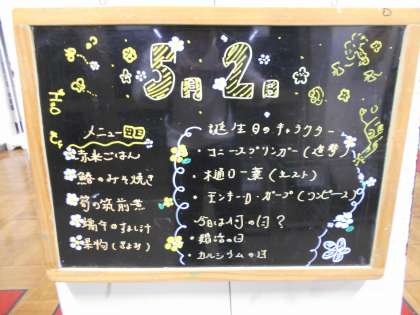 5月2日
メニュー
・赤米ごはん
・鰆のみそ焼き
・筍の筑前煮
・端午のすまし汁
・果物(きよみ)
誕生日のキャラクター
・コニー・スプリンガー(進撃)
・樋口一葉(文スト)
・モンキー・D・ガープ(ワンピース)
今日は何の日?
・鉛活の日
・カルシウムの日